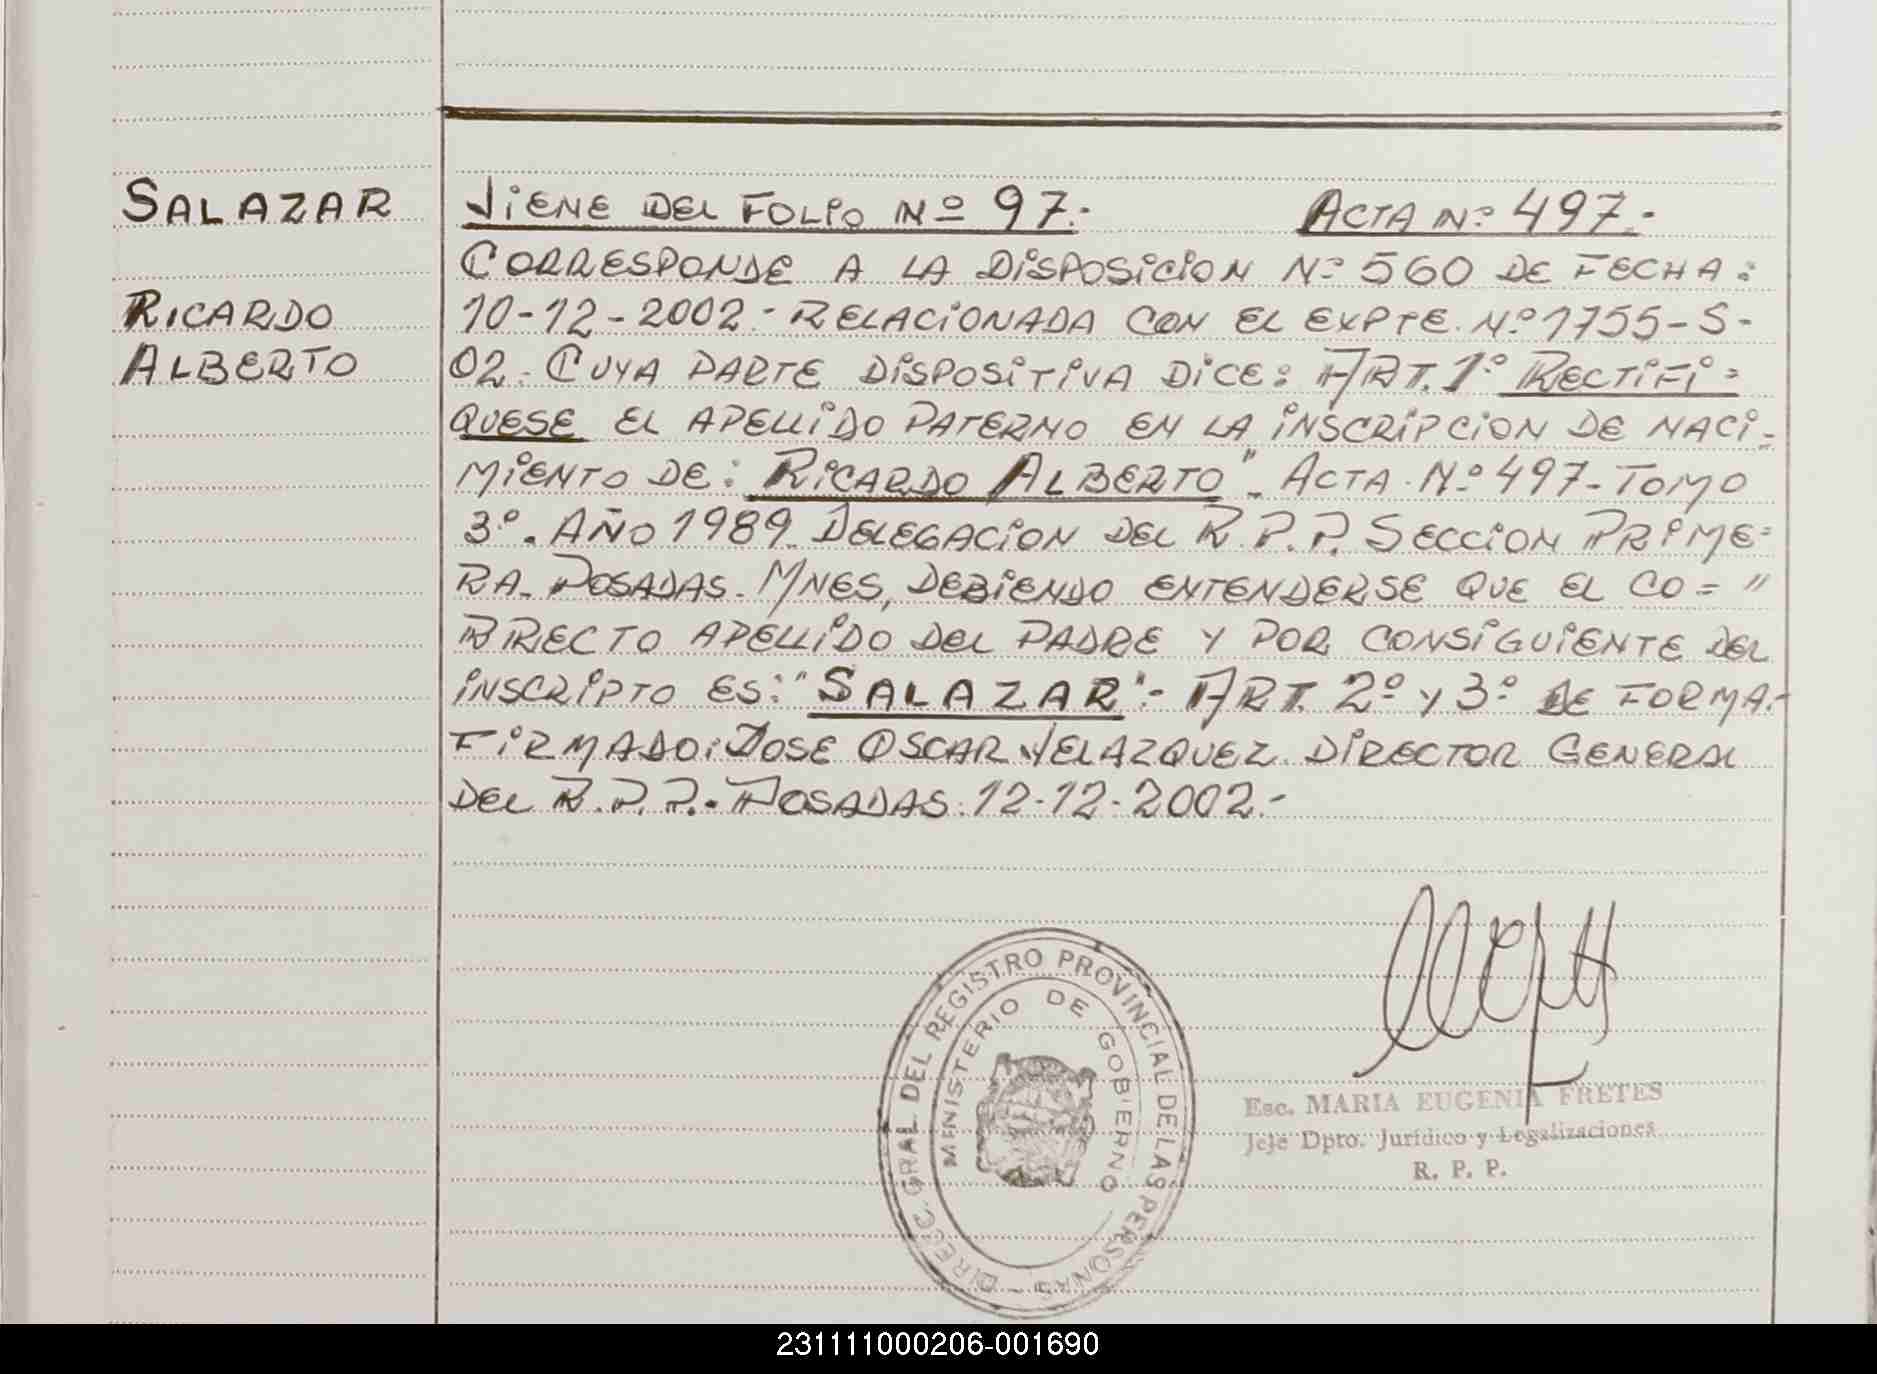 SALAZAR
RICARDO
ALBERTO
VIENE DEL FOLIO Nº 97.- ACTA Nº 497.-
CORRESPONDE A LA DISPOSICION Nº 560 DE FECHA:
10-12-2002.- RELACIONADA CON EL EXPTE. Nº 1755-S-
02. CUYA PARTE DISPOSITIVA DICE: ART. 1º RECTIFI=
QUESE EL APELLIDO PATERNO EN LA INSCRIPCION DE NACI-
MIENTO DE: RICARDO ALBERTO". ACTA Nº 497- TOMO
3º. AÑO 1989. DELEGACION DEL R.P.P. SECCION PRIME=
RA. POSADAS. MNES, DEBIENDO ENTENDERSE QUE EL CO= "
RRECTO APELLIDO DEL PADRE Y POR CONSIGUIENTE DEL
INSCRIPTO ES: "SALAZAR".- ART. 2º Y 3º DE FORMA.-
FIRMADO: JOSE OSCAR VELAZQUEZ. DIRECTOR GENERAL
DEL R.P.P.- POSADAS. 12-12-2002.-
DIRECC. GRAL DEL REGISTRO PROVINCIAL DE LAS PERSONAS -
MINISTERIO DE GOBIERNO
Esc. MARIA EUGENIA FRETES
Jefe Dpto. Jurídico y Legalizaciones
R. P. P.
231111000206-001690